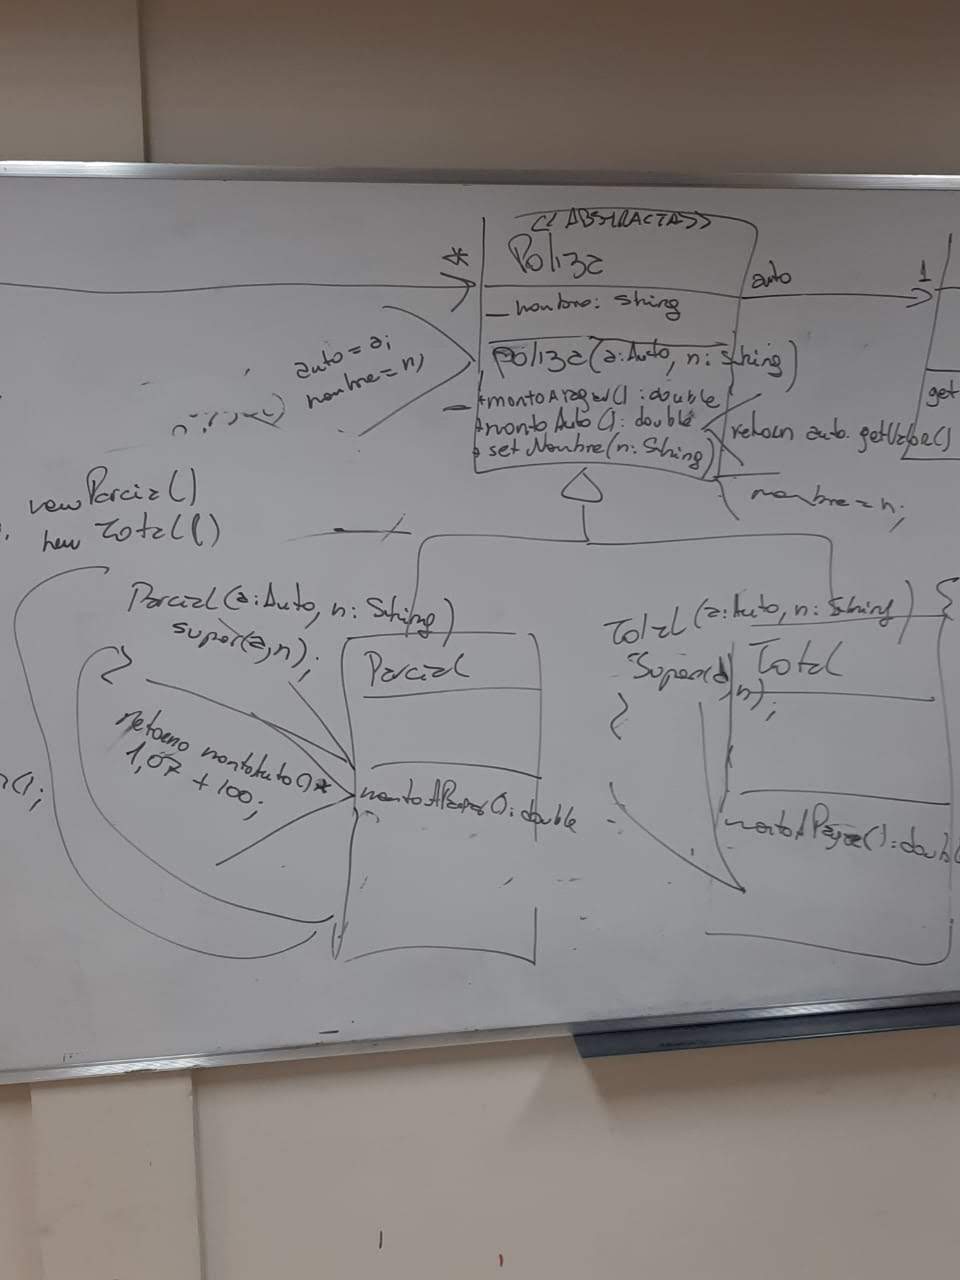 <<ABSTRACTA>>
Poliza
*
auto
1
- nombre: String
Poliza(a:Auto, n: String)
auto = a;
nombre = n;
+montoAPagar(): double
+montoAuto(): double
+ setNombre(n: String)
return auto.getValor()
nombre = n;
get
new Parcial()
new Total()
Parcial(a:Auto, n: String)
super(a,n);
}
Parcial
Retorno montoAuto()*
1,07 + 100;
montoAPagar(): double
Total(a:Auto, n: String) {
super(a,n);
}
Total
montoAPagar(): doubl